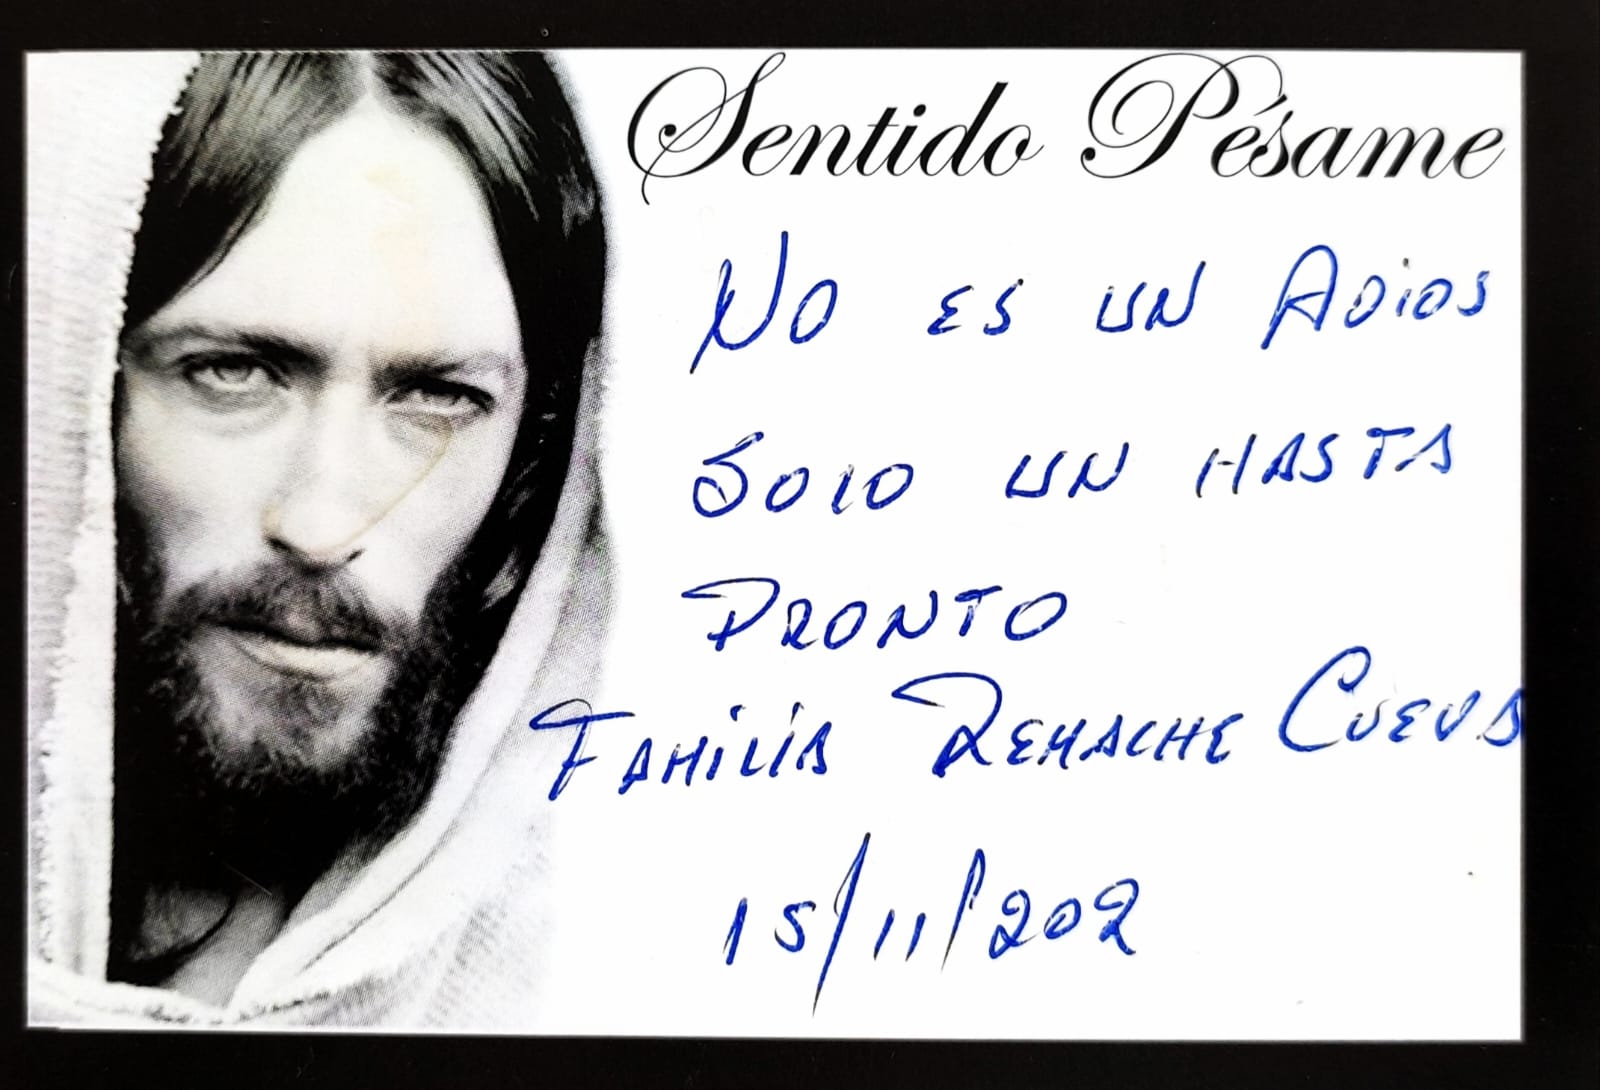 Sentido Pésame
NO ES UN ADIOS
SOLO UN HASTA
PRONTO
FAMILIA REMACHE CUEVA
15/11/202